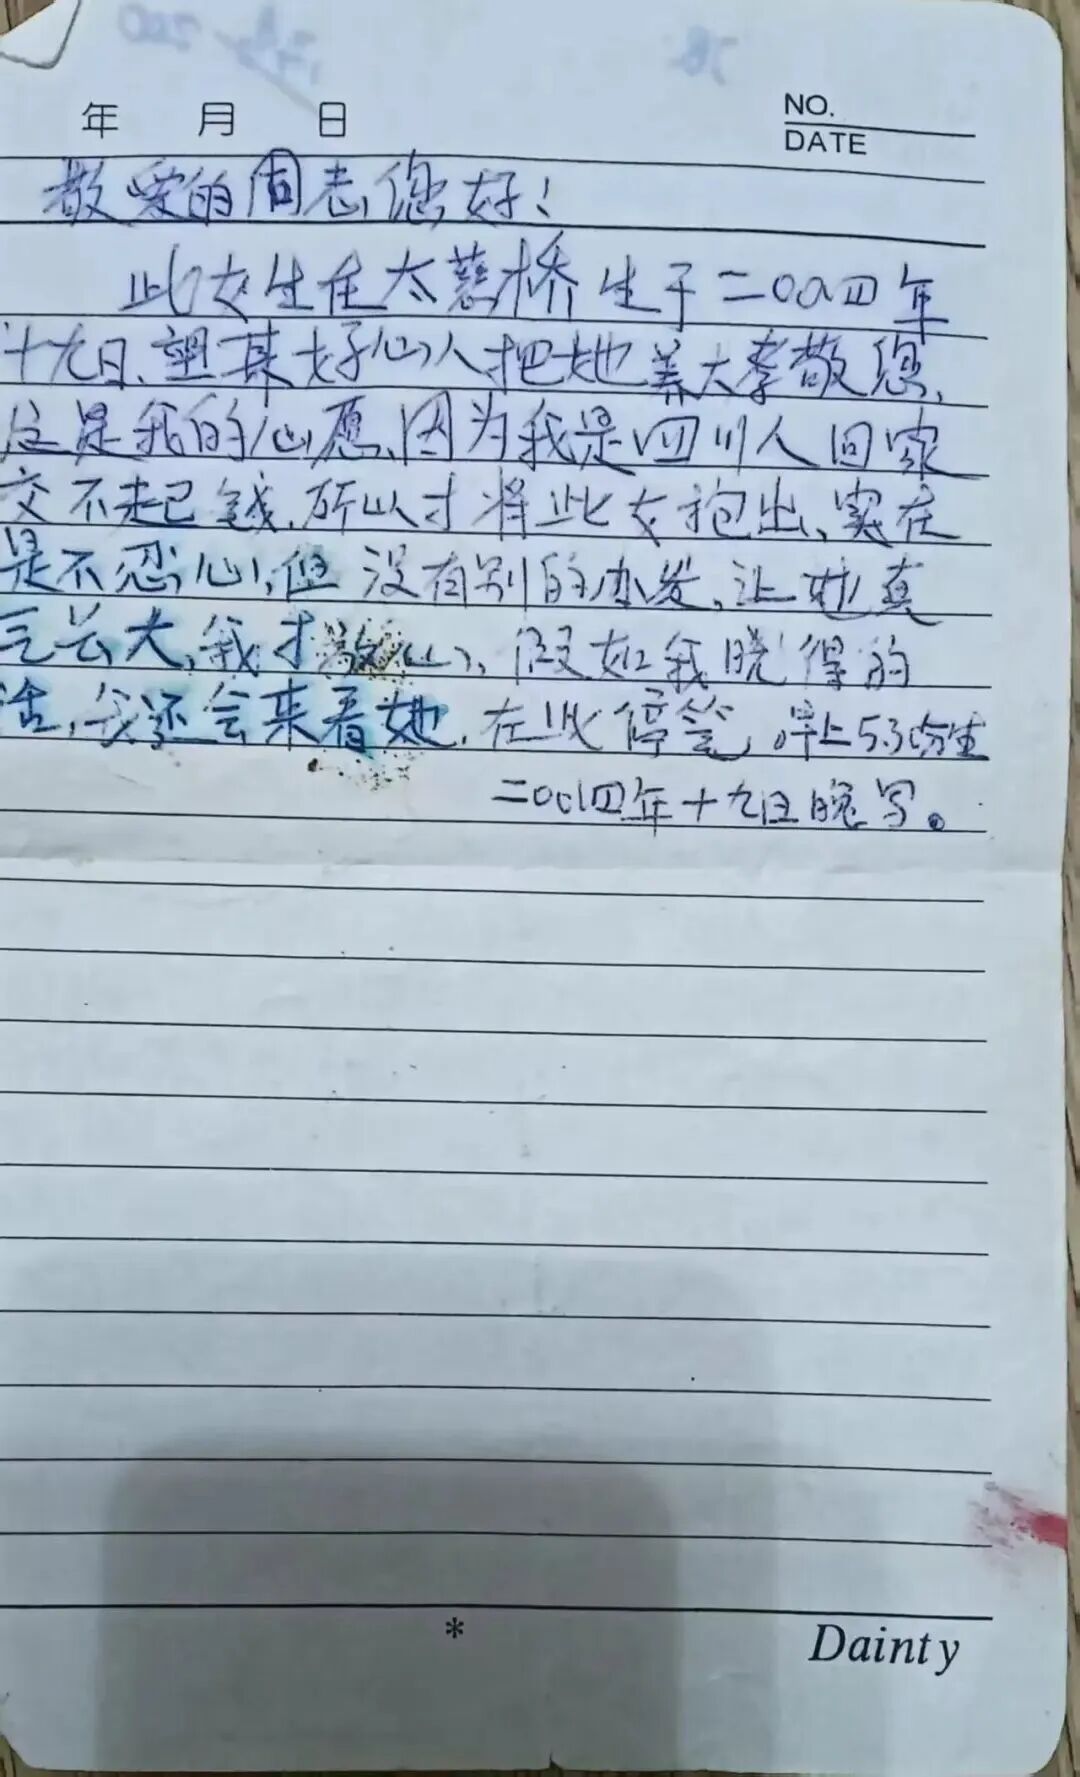 年 月 日 NO.
DATE
敬爱的同志您好！
此女生在太慈桥生于二00四年
十九日、望某好心人把她养大孝敬您、
这是我的心愿、因为我是四川人回家
交不起钱、所以才将此女抱出、实在
是不忍心、但没有别的办发、让她真
长大、我才放心、假如我晓得的
话、我还会来看她、在此停笔、早上5.30分生
二00四年十九日晚写。
* Dainty